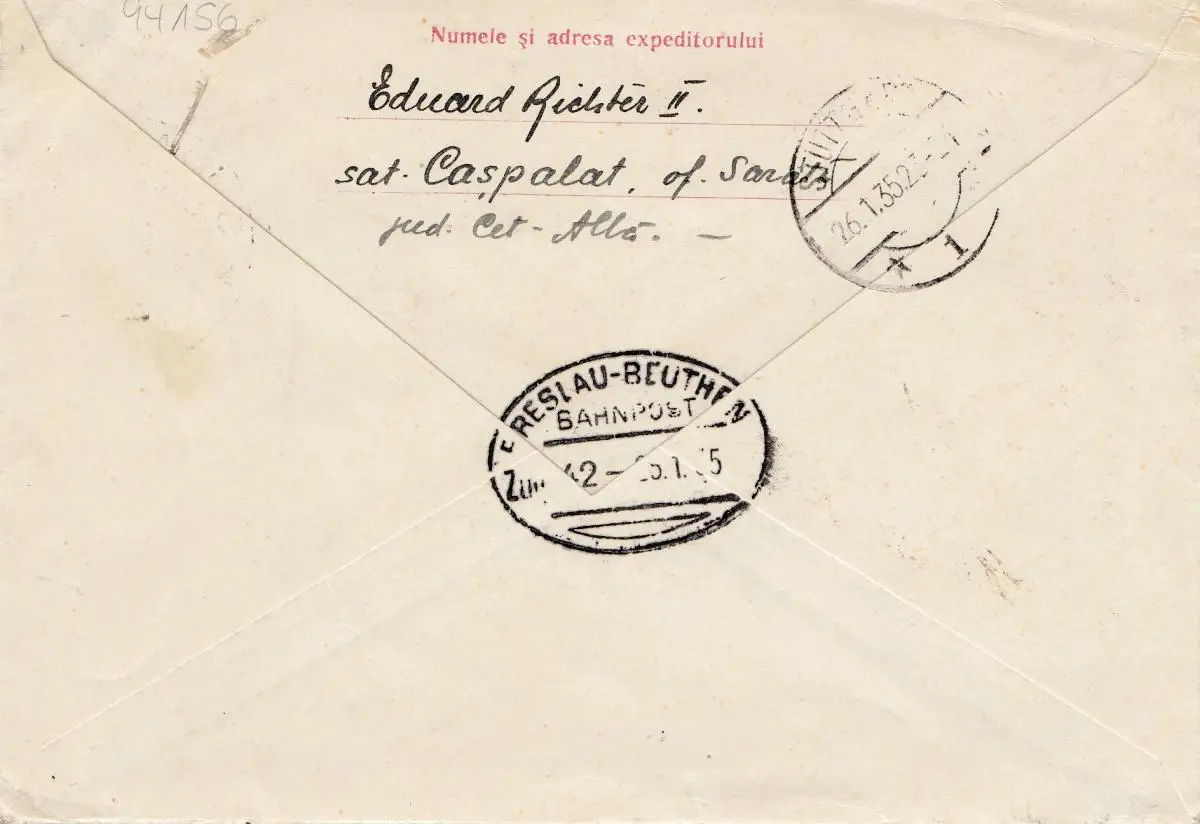 94156
Numele şi adresa expeditorului
Eduard Richter II.
sat. Caşpalat, of. Sarata
jud. Cet-Albă. —
STUTTGART
26.1.35.21-24
* 1
BRESLAU-BEUTHEN
BAHNPOST
Zug 42 - 25.1.35